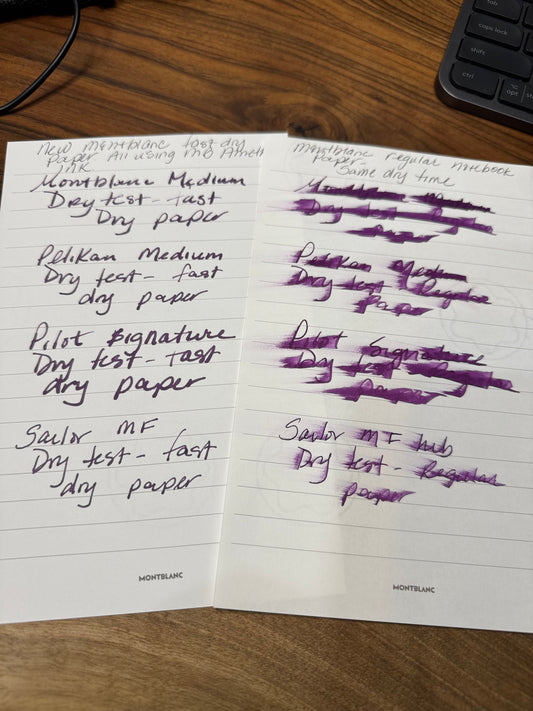 New Montblanc fast dry
Paper All using MB Amethyst
INK
Montblanc Medium
Dry test - fast
Dry paper
Pelikan Medium
Dry test - fast
dry paper
Pilot Signature
Dry test - fast
dry paper
Sailor MF
Dry test - fast
dry paper
MONTBLANC
Montblanc regular notebook
Paper -
Same dry time
Montblanc Medium
Dry test - Regular
Paper
Pelikan Medium
Dry test - Regular
Paper
Pilot Signature
Dry test - Regular
paper
Sailor MF nib
Dry test - Regular
paper
MONTBLANC
tab
caps lock
shift
ctrl
⌥
opt